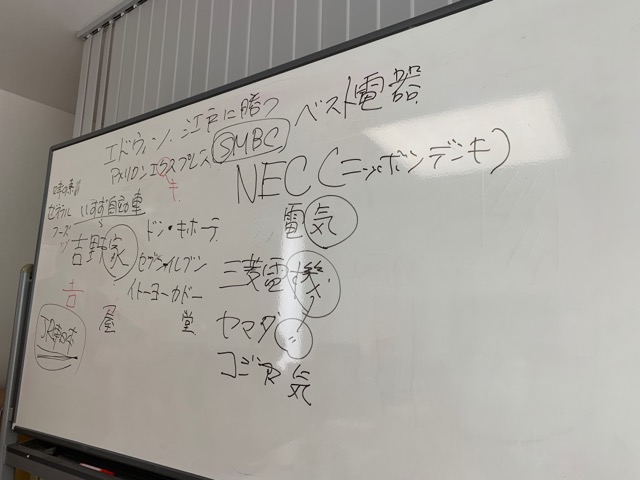 エドウィン 江戸に勝つ
ベスト電器
アメリカンエクスプレス
キ
SMBC
NEC (ニッポンデンキ)
電気
セントラル いすず自動車
フーズ
吉野家
ドン・キホーテ
セブンイレブン
イトーヨーカドー
三菱電機
吉
屋 堂
ヤマダ
コジマ 気
JR東日本